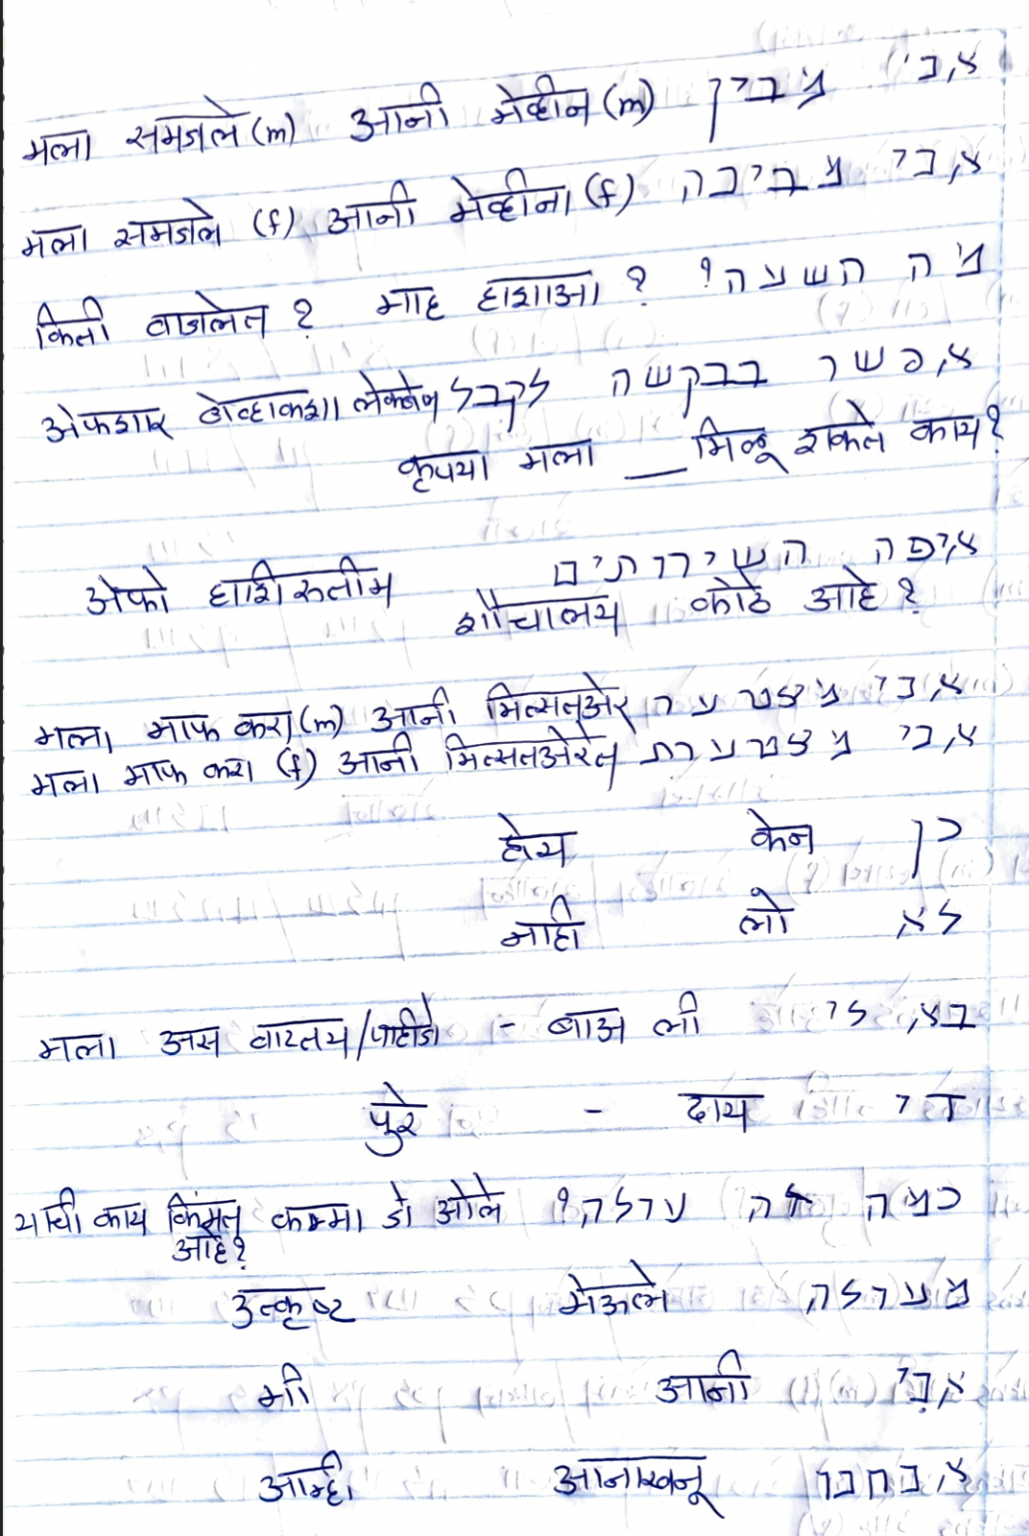 मला समजले (m) आनी मेव्हीन (m) אני מבין
मला समजले (f) आनी मेव्हीना (f) אני מבינה
किती वाजलेत ? माह हाशाआ ? מה השעה?
अेफशार बेव्हाकशा लेकबेल אפשר בבקשה לקבל
कृपया मला __ मिळू शकेल काय?
अेफो हाशिरुतीम איפה השירותים
शौचालय कोठे आहे ?
मला माफ करा (m) आनी मित्सतअेर אני מצטער
मला माफ करा (f) आनी मित्सतअेरेत אני מצטערת
होय केन כן
नाही लो לא
मला अस वाटतय/पाहीजे - बाअ ली בא לי
पुरे - दाय די
याची काय किंमत कम्मा झे ओले כמה זה עולה?
आहे?
उत्कृष्ट मेअुले מעולה
मी आनी אני
आम्ही आनाखनू אנחנו